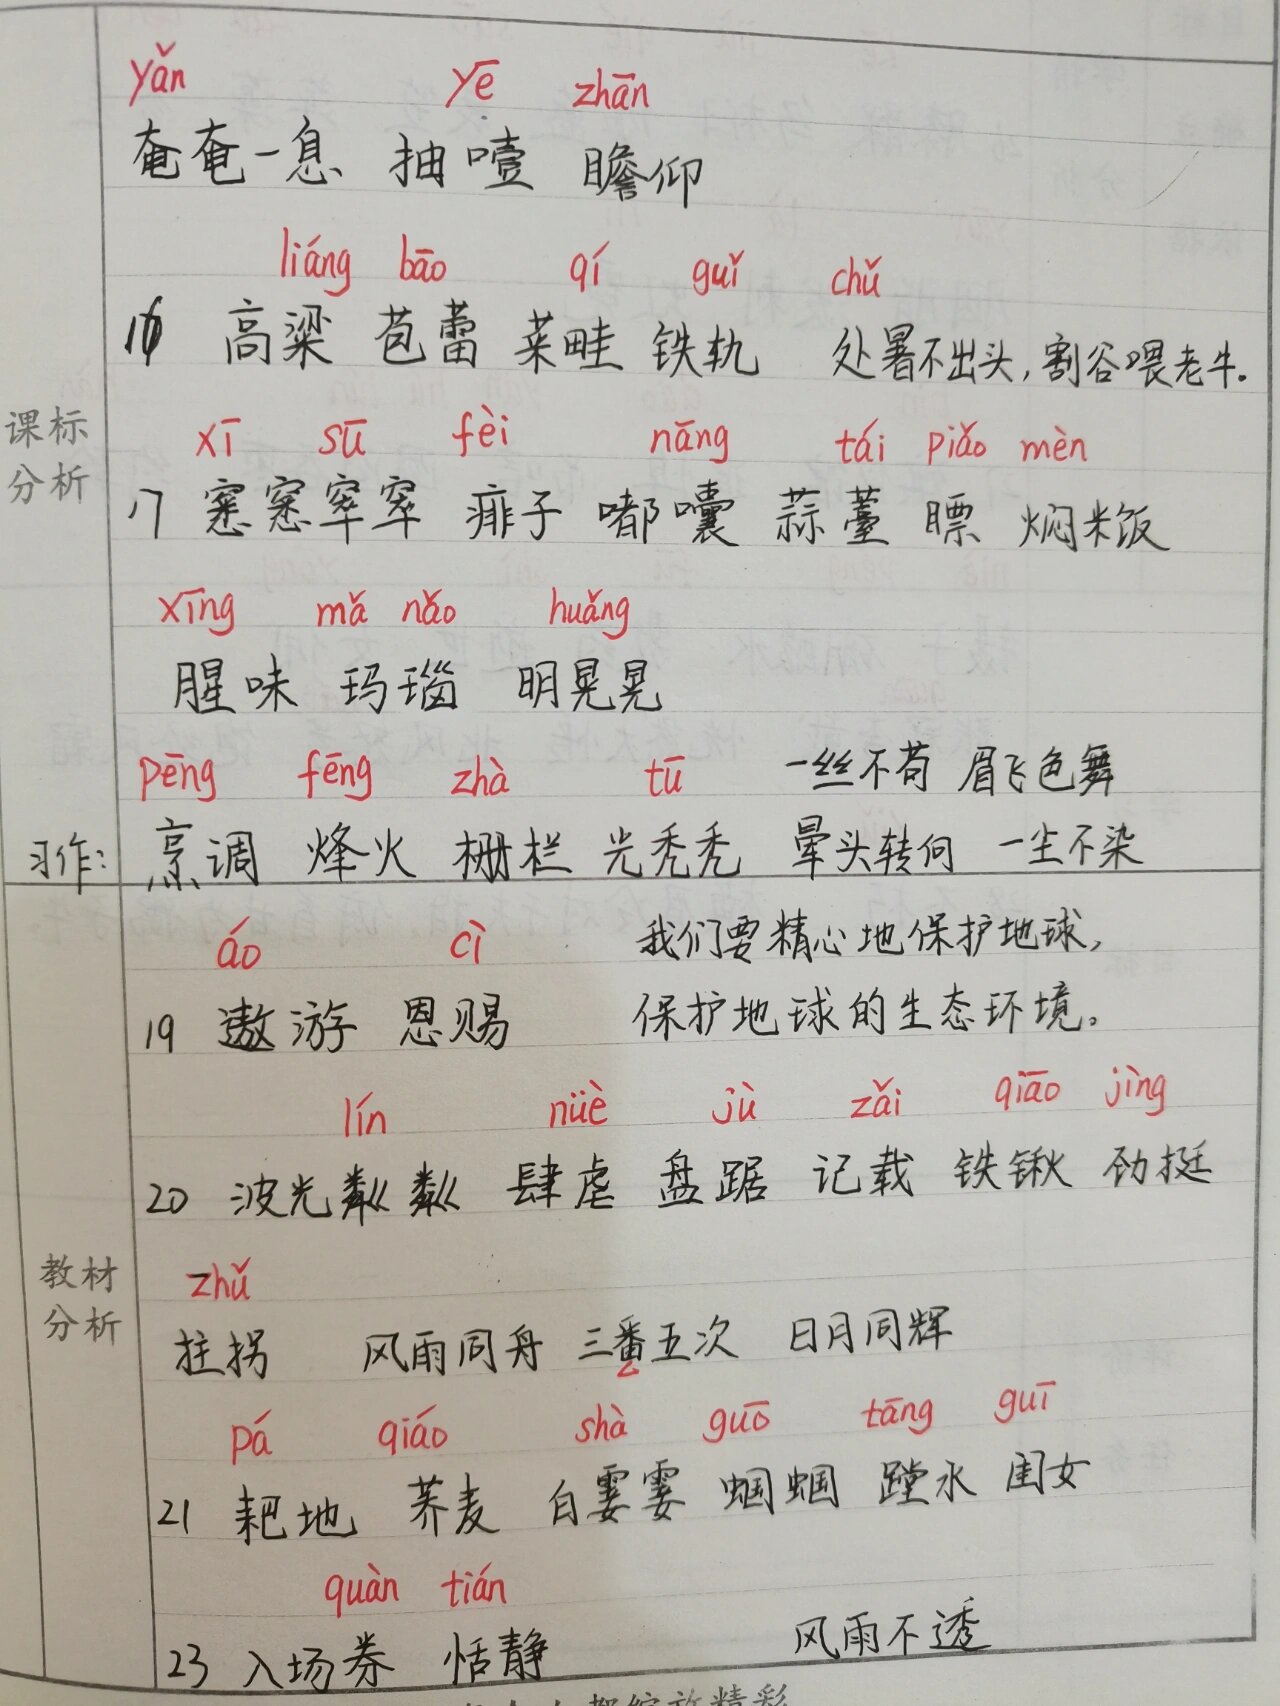 yǎn yē zhān
奄奄一息 抽噎 瞻仰
liáng bāo qí guǐ chǔ
16 高粱 苞蕾 菜畦 铁轨 处暑不出头,割谷喂老牛.
课标
分析
xī sū fèi nāng tái piǎo mèn
17 窸窸窣窣 痱子 嘟囔 蒜薹 瞟 焖米饭
xīng mǎ nǎo huǎng
腥味 玛瑙 明晃晃
pēng fēng zhà tū 一丝不苟 眉飞色舞
习作: 烹调 烽火 栅栏 光秃秃 晕头转向 一尘不染
áo cì 我们要精心地保护地球,
19 遨游 恩赐 保护地球的生态环境。
lín nüè jù zǎi qiāo jìng
20 波光粼粼 肆虐 盘踞 记载 铁锹 劲挺
教材
分析
zhǔ
拄拐 风雨同舟 三番五次 日月同辉
pá qiáo shà guō tāng guī
21 耙地 荞麦 白霎霎 蝈蝈 蹚水 闺女
quàn tián
23 入场券 恬静 风雨不透